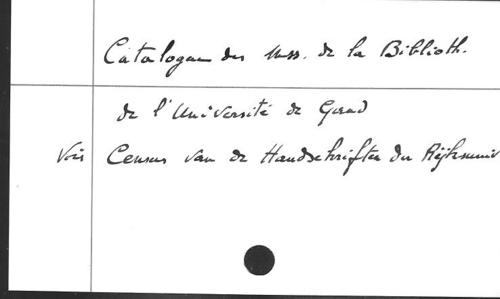 Catalogue des Mss. de la Biblioth.
de l'Université de Gand
Voir Census van de Handschriften der Rijksuniv